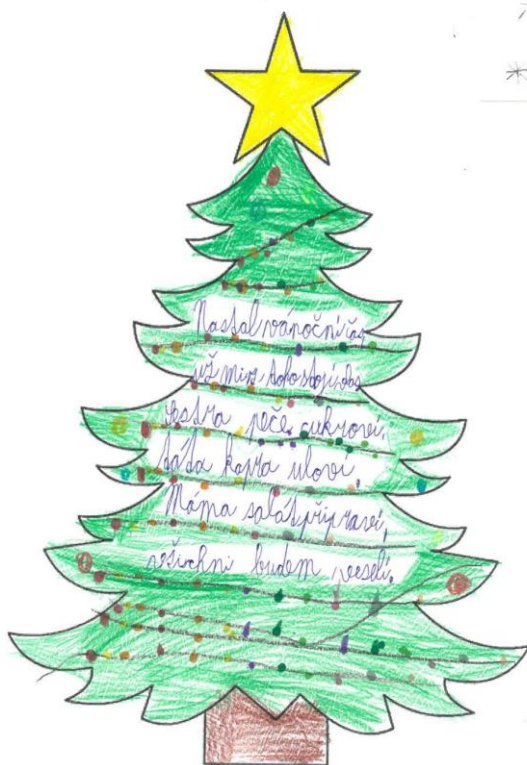 Nastal vánoční čas
už mi z toho stojí vlas
sestra peče cukroví,
táta kapra uloví
Máma salát připraví,
všichni budem veselí.